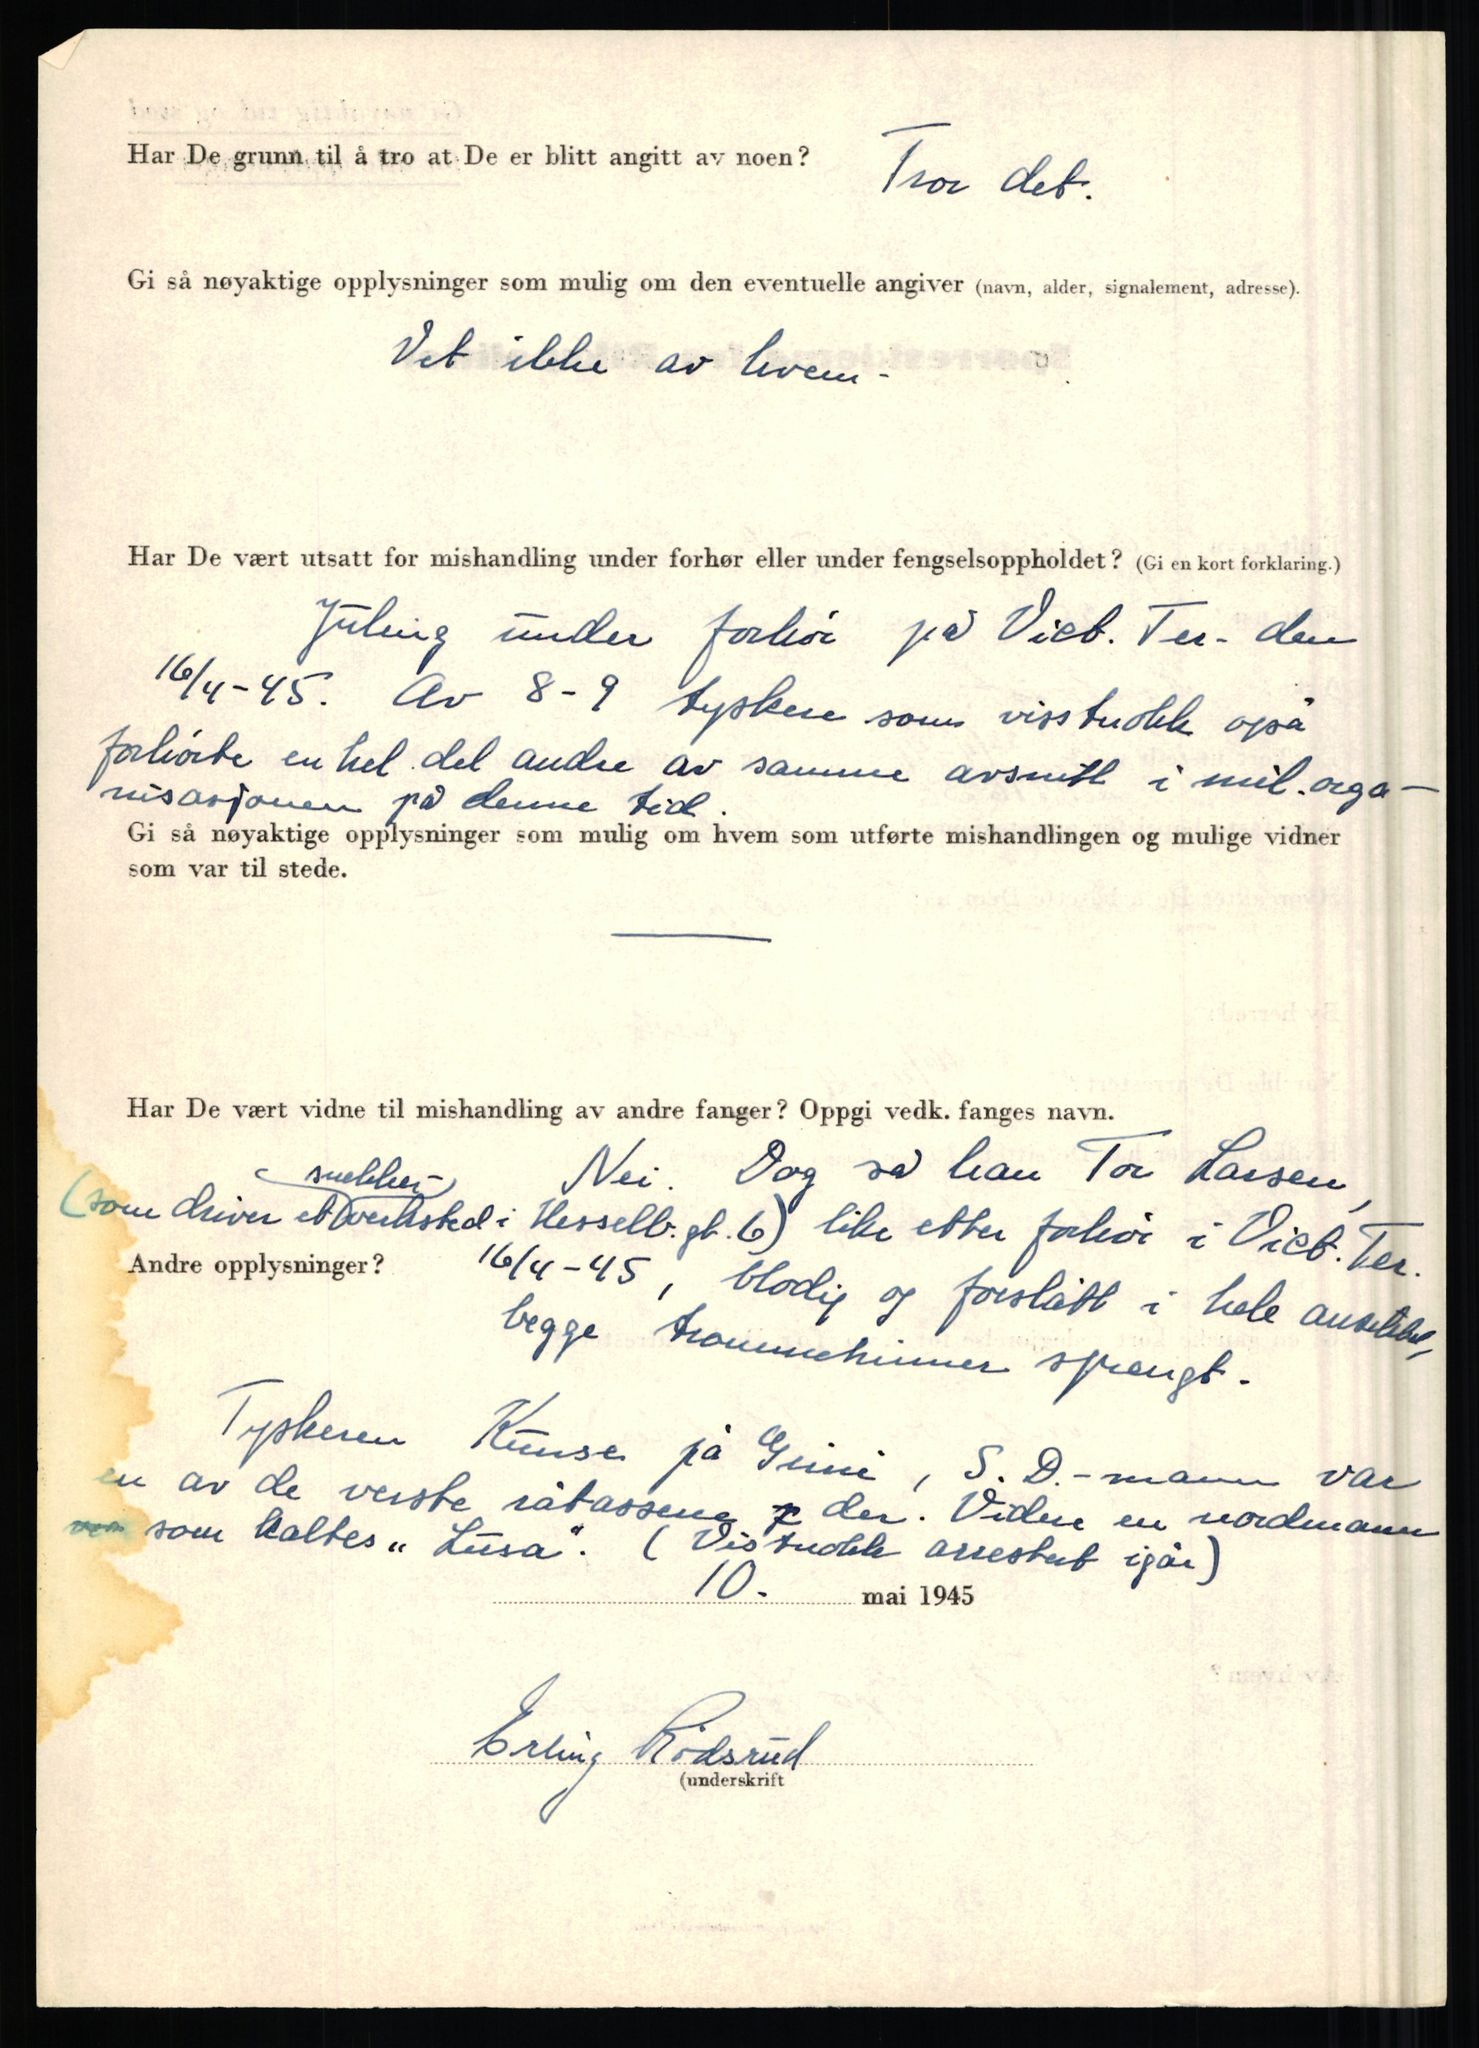 Har De grunn til å tro at De er blitt angitt av noen?
Tror det.
Gi så nøyaktige opplysninger som mulig om den eventuelle angiver (navn, alder, signalement, adresse).
Vet ikke av hvem -
Har De vært utsatt for mishandling under forhør eller under fengselsoppholdet? (Gi en kort forklaring.)
Juling under forhör på Vict. Ter. den
16/4-45. Av 8-9 tyskere som visstnokk også
forhörte en hel del andre av samme avsnitt i mil. orga-
nisasjonen på denne tid.
Gi så nøyaktige opplysninger som mulig om hvem som utførte mishandlingen og mulige vidner
som var til stede.
Har De vært vidne til mishandling av andre fanger? Oppgi vedk. fanges navn.
Nei. Dog så han Tor Larsen,
snekker-
(som driver et verksted i Hesselb. gt. 6) like etter forhör i Vict. Ter.
Andre opplysninger?
16/4-45, blodig og forslått i hele ansiktet,
begge trommehinner sprengt.
Tyskeren Kunse på Grini, S.D.-mann var
en av de verste råtassene der. Videre en nordmann
som kaltes "Lusa". (Vistnokk arrestert igår)
10. mai 1945
Erling Rödsrud
(underskrift